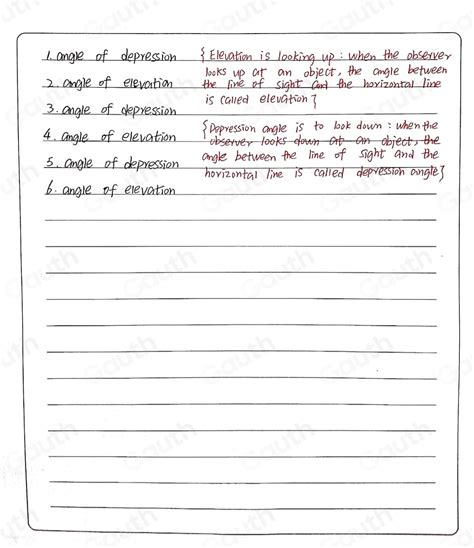 1. angle of depression
2. angle of elevation
3. angle of depression
4. angle of elevation
5. angle of depression
6. angle of elevation
{Elevation is looking up : when the observer
looks up at an object, the angle between
the line of sight and the horizontal line
is called elevation}
{Depression angle is to look down : when the
observer looks down at an object, the
angle between the line of sight and the
horizontal line is called depression angle}
Gauth